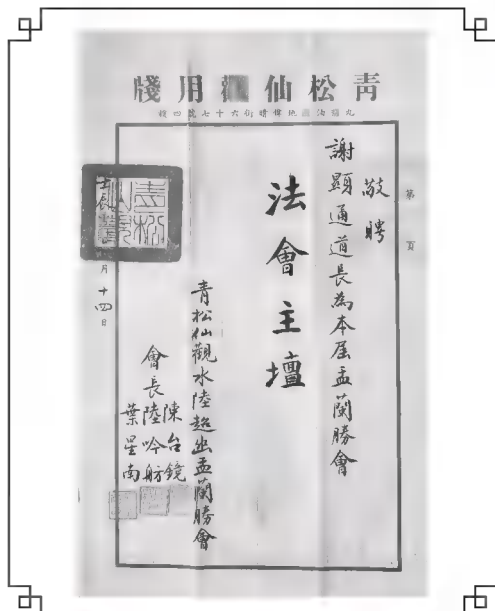 青松仙觀用牋
九龍油麻地偉晴街六十七號四樓
第 頁
敬聘
謝顯通道長為本屆盂蘭勝會
法會主壇
青松仙觀水陸超幽盂蘭勝會
會長
陳台鏡
陸吟舫
葉星南
壬辰 月十四日
青松仙觀